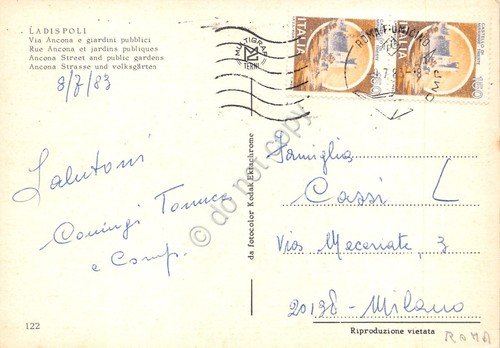 LADISPOLI
Via Ancona e giardini pubblici
Rue Ancona et jardins publiques
Ancona Street and public gardens
Ancona Strasse und volksgärten
8/7/83
Salutoni
e Comp.
122
da fotocolor Kodak Ektachrome
MULTIGRAF
TERNI
ITALIA
ITALIA
ROMA FIUMICINO
Famiglia
Cassi L
Via Macerate, 3
20138 - Milano
Riproduzione vietata
ROMA
do not copy